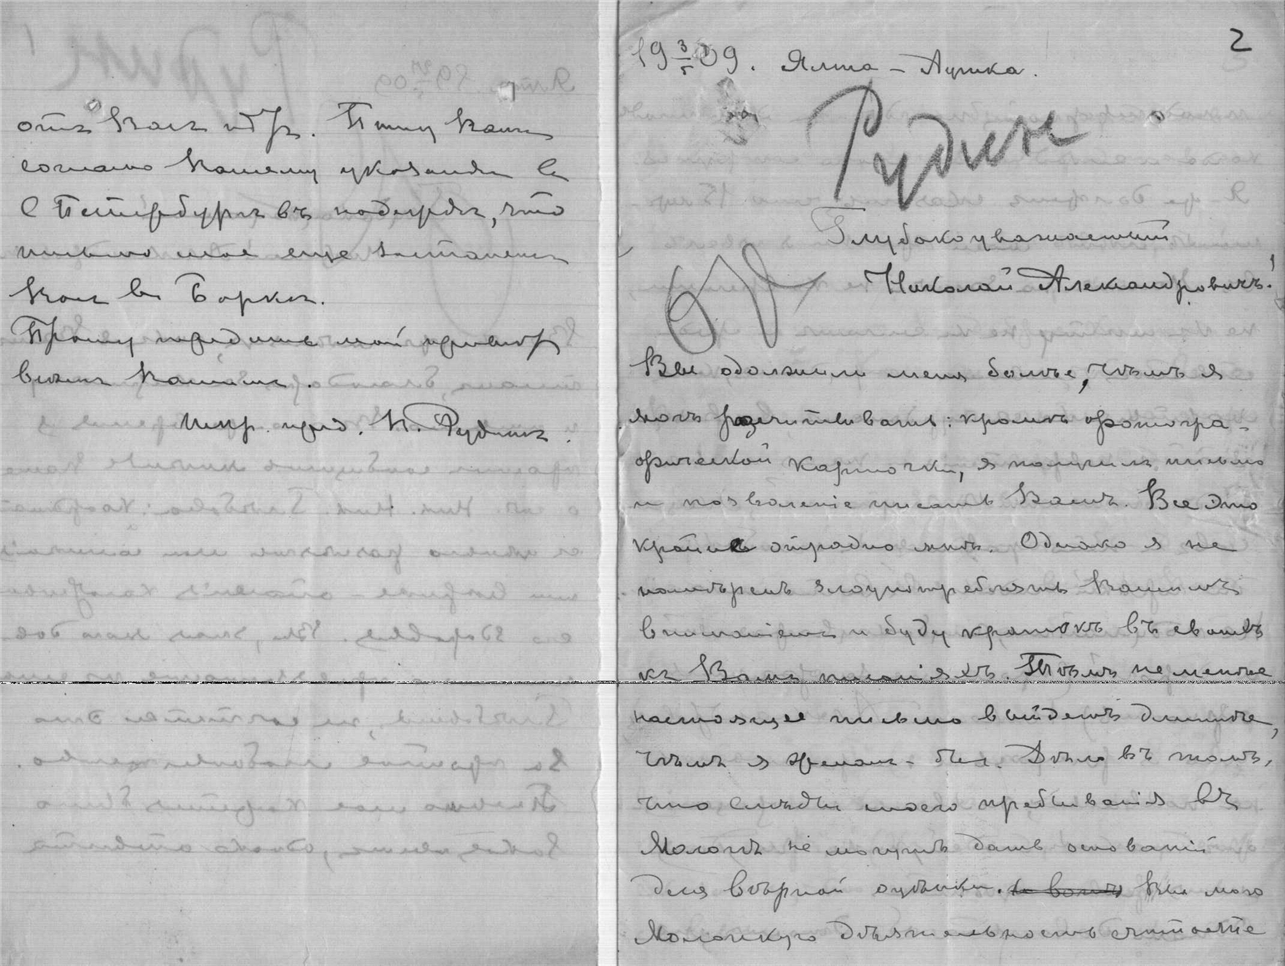 отъ Васъ
Пишу Вамъ
согласно Вашему указанію въ
С Петербургъ въ надеждѣ, что
письмо мое еще застанетъ
Васъ въ Боркѣ.
Прошу передать мой
Вашимъ.
Рудинъ.
2
19 3/5 09. Ялта – Аутка.
Рудинъ
Глубокоуважаемый
Николай Александровичъ!
Вы одолжили меня болѣе, чѣмъ я
могъ разсчитывать: кромѣ фотогра-
фической карточки, я получилъ письмо
и позволеніе писать Вамъ. Все это
крайне отрадно мнѣ. Однако я не
намѣренъ злоупотреблять Вашимъ
вниманіемъ и буду кратокъ въ своихъ
къ Вамъ писаніяхъ. Тѣмъ не менѣе
настоящее письмо выйдетъ длиннѣе,
чѣмъ я желалъ-бы. Дѣло въ томъ,
что слѣды моего пребыванія въ
Мологѣ не могутъ дать основаній
для вѣрной оцѣнки. Вы мою
Мологскую дѣятельность считаете